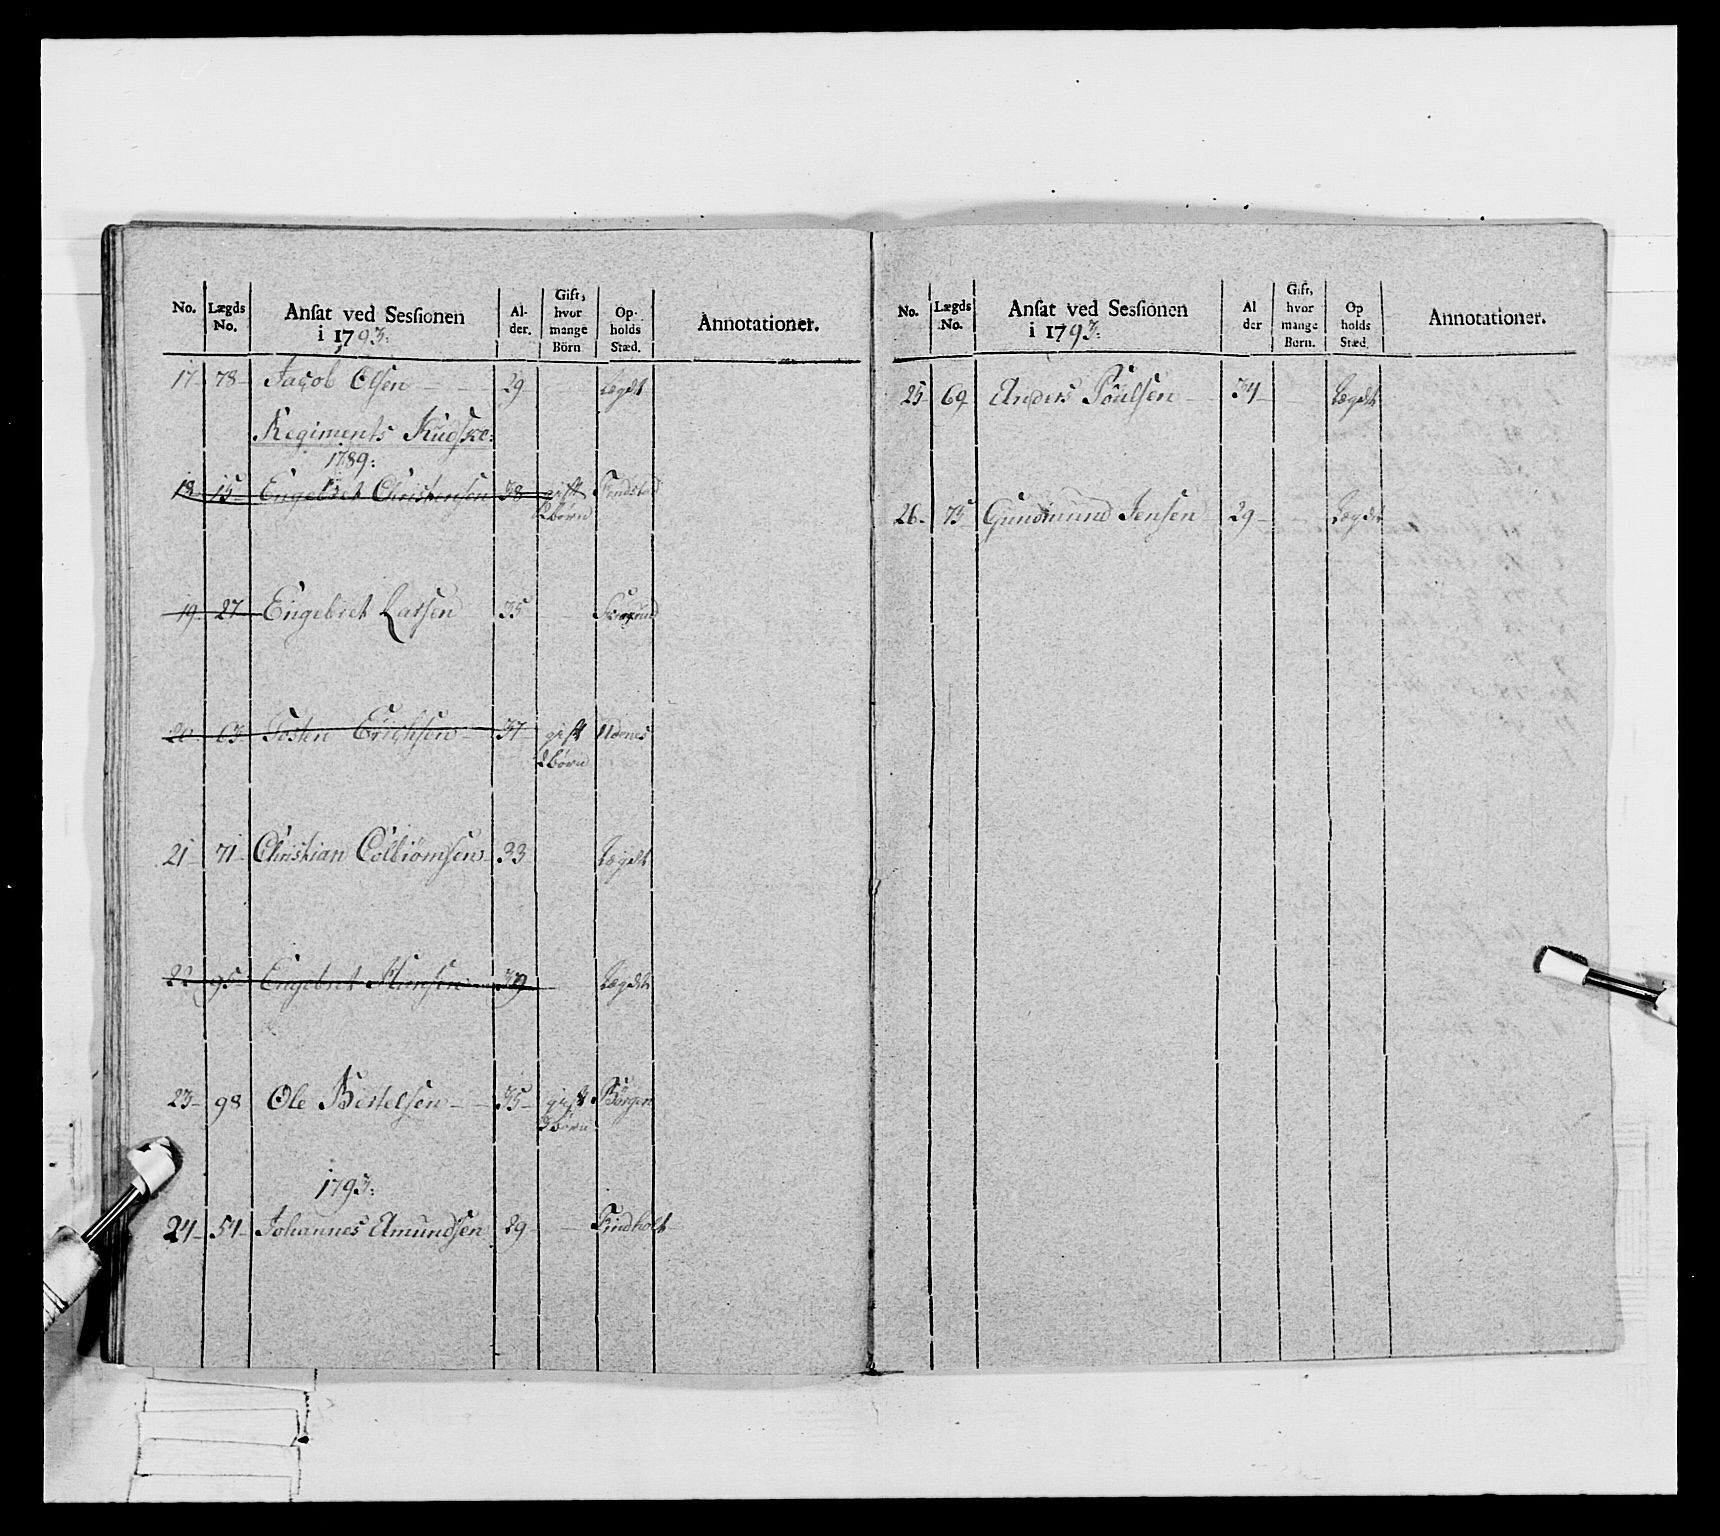 No. Lægds No. Ansat ved Sessionen i 1793: Alder. Gift, hvor mange Börn Opholds Stæd. Annotationer.
17 78 Jacob Olsen 29 Lægdt
Regiments Kudske:
1789:
18 15 Engebret Christensen 38 gift
2 børn
19 27 Engebret Larsen 35
20 63 Tosten Erichsen 37 gift
2 børn
21 71 Christian Colbiørnsen 33 Lægdt
22 95 Engebret 39 Lægdt
23 98 Ole Bertelsen 35 gift Borgen
3 børn
1793:
24 54 Johannes Amundsen 29 Findholt
No. Lægds No. Ansat ved Sessionen i 1793: Al der Gift, hvor mange Born. Op holds Stæd. Annotationer.
25 69 Anders Poulsen 34 Lægdt
26 75 Gundmund Jensen 29 Lægdt